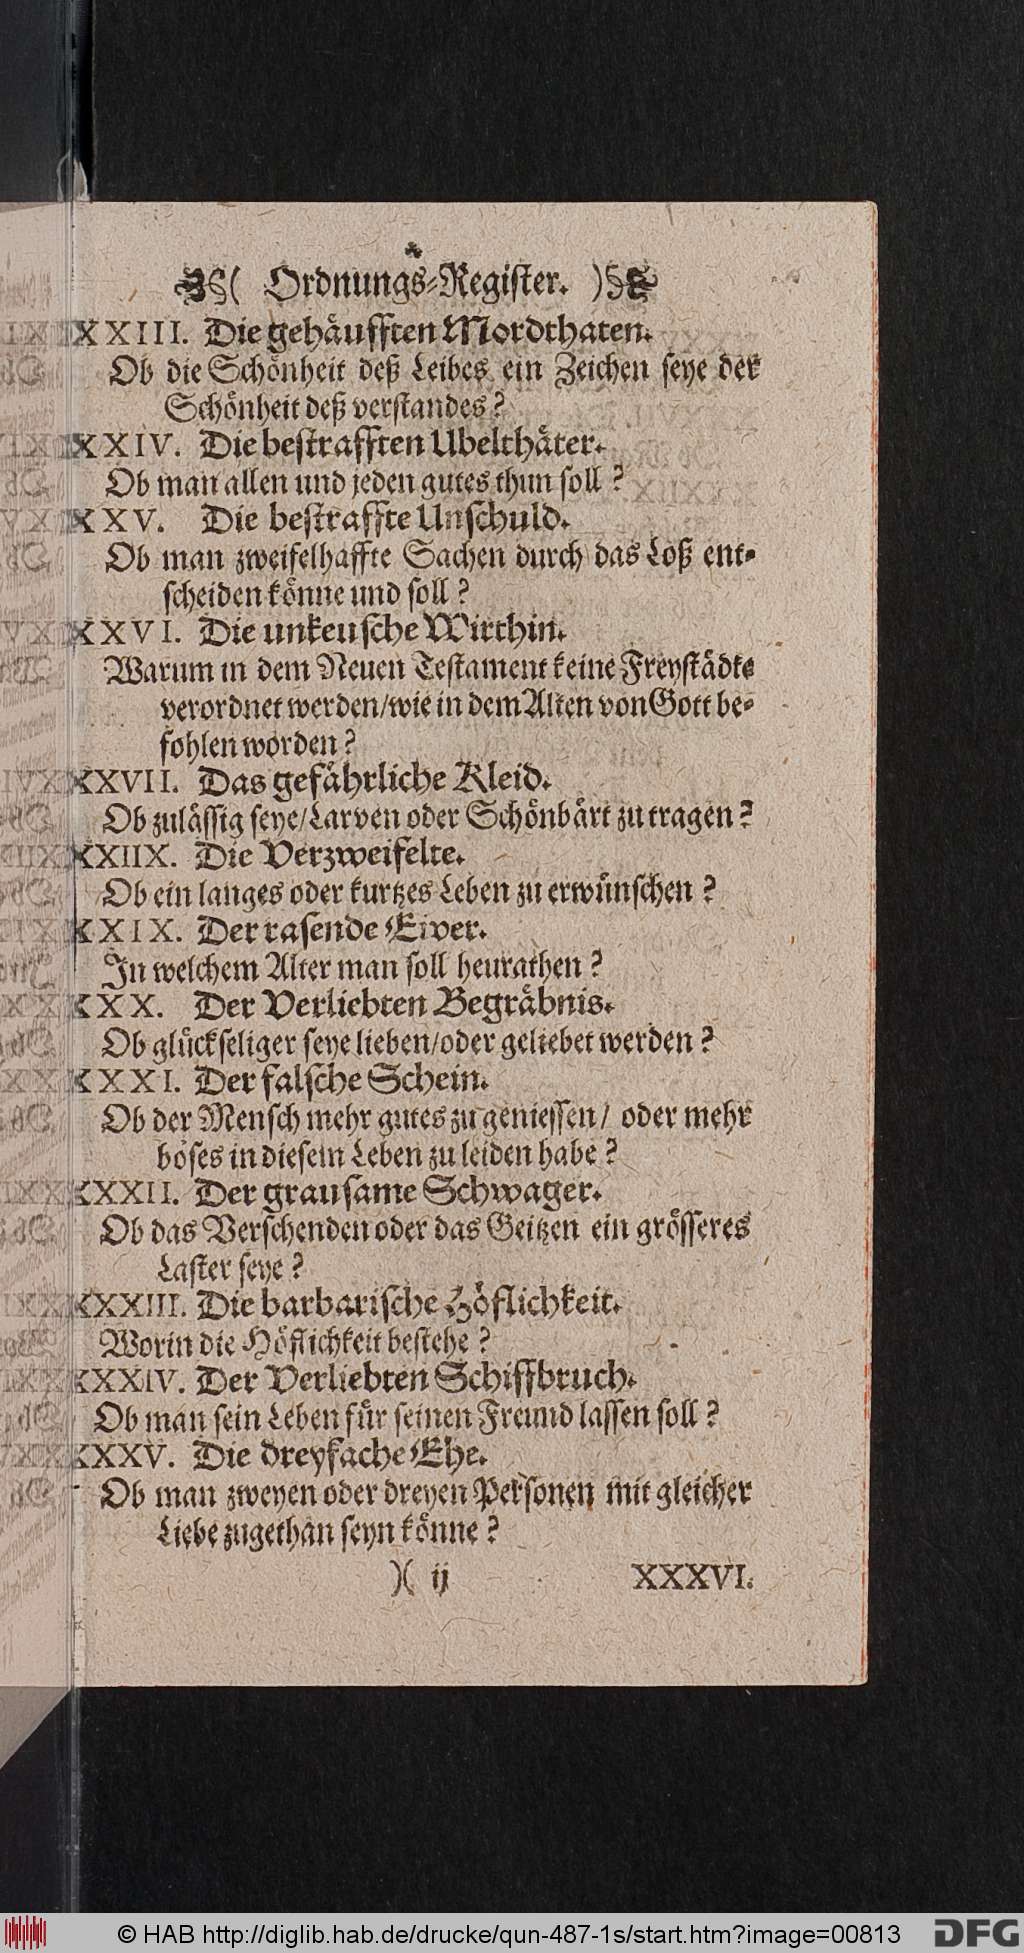 ( Ordnungs-Register. )
XXIII. Die gehäufften Mordthaten.
Ob die Schönheit deß Leibes ein Zeichen seye der
Schönheit deß verstandes?
XXIV. Die bestrafften Ubelthäter.
Ob man allen und jeden gutes thun soll?
XXV. Die bestraffte Unschuld.
Ob man zweifelhaffte Sachen durch das Loß ent-
scheiden könne und soll?
XXVI. Die unkeusche Wirthin.
Warum in dem Neuen Testament keine Freystädte
verordnet werden/wie in dem Alten von Gott be-
fohlen worden?
XXVII. Das gefährliche Kleid.
Ob zulässig seye/Larven oder Schönbärt zu tragen?
XXIIX. Die Verzweifelte.
Ob ein langes oder kurtzes Leben zu erwünschen?
XXIX. Der rasende Eiver.
In welchem Alter man soll heurathen?
XXX. Der Verliebten Begräbnis.
Ob glückseliger seye lieben/oder geliebet werden?
XXXI. Der falsche Schein.
Ob der Mensch mehr gutes zu geniessen/ oder mehr
böses in diesem Leben zu leiden habe?
XXXII. Der grausame Schwager.
Ob das Verschenden oder das Geitzen ein grösseres
Laster seye?
XXXIII. Die barbarische Höflichkeit.
Worin die Höflichkeit bestehe?
XXXIV. Der Verliebten Schiffbruch.
Ob man sein Leben für seinen Freund lassen soll?
XXXV. Die dreyfache Ehe.
Ob man zweyen oder dreyen Personen mit gleicher
Liebe zugethan seyn könne?
)( ij XXXVI.
© HAB http://diglib.hab.de/drucke/qun-487-1s/start.htm?image=00813 DFG